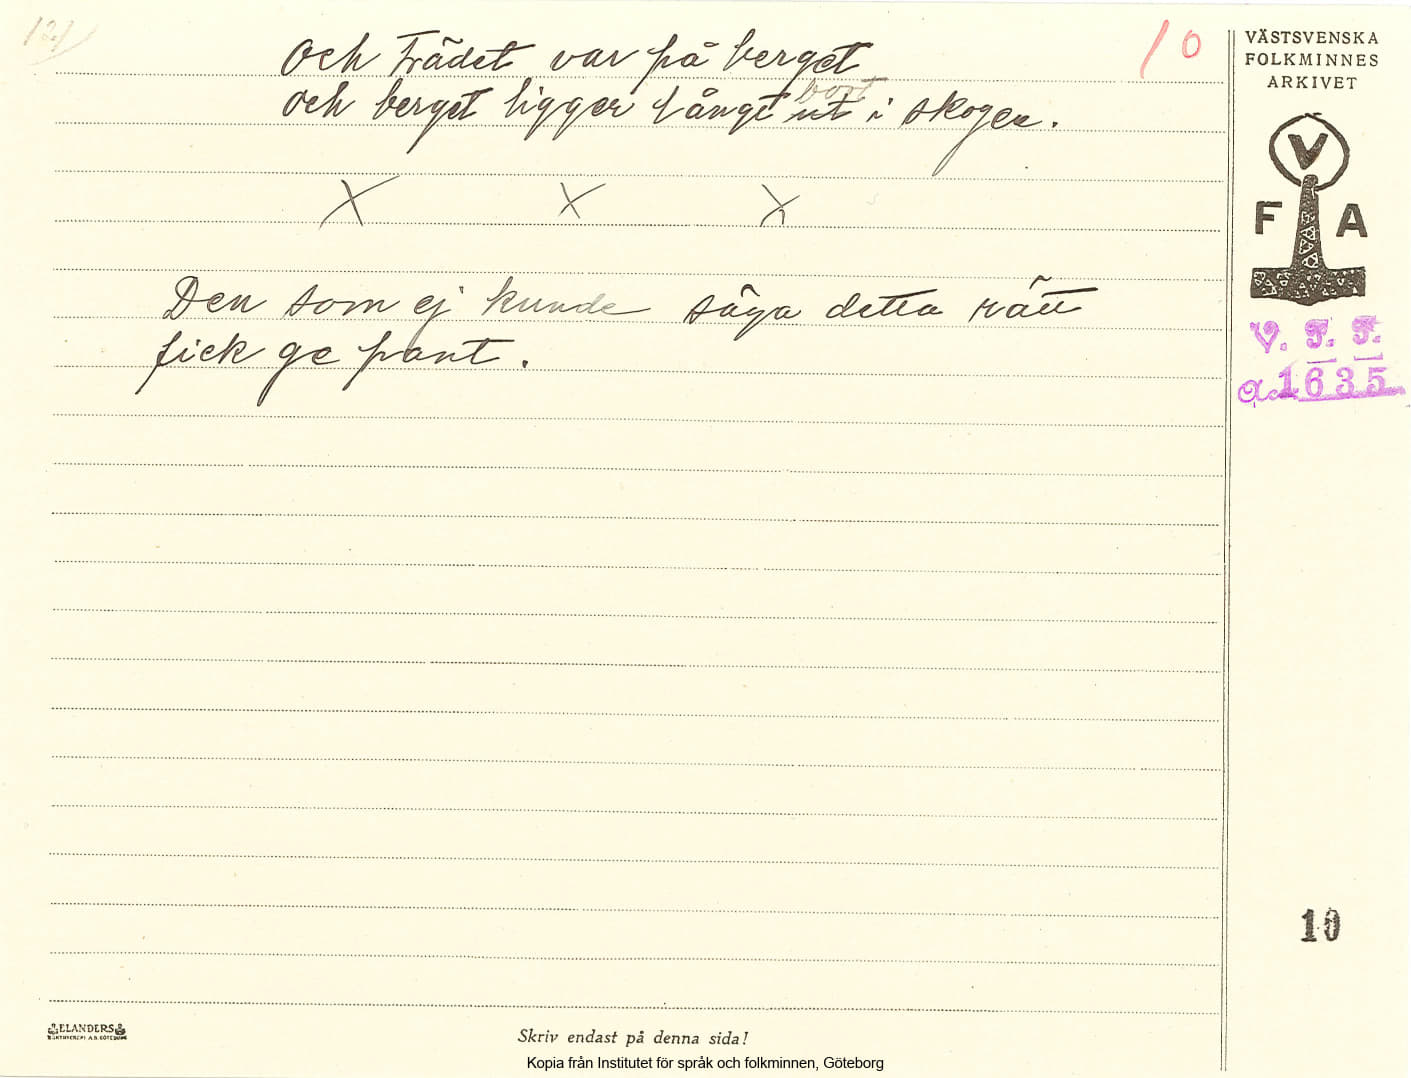 12)
10
Och Trädet var på berget
bort
och berget ligger långt ut i skogen.
X X X
Den som ej kunde säga detta rätt
fick ge pant.
VÄSTSVENSKA
FOLKMINNES
ARKIVET
V
F A
V. F. F.
a. 1635
10
ELANDERS
Skriv endast på denna sida!
Kopia från Institutet för språk och folkminnen, Göteborg